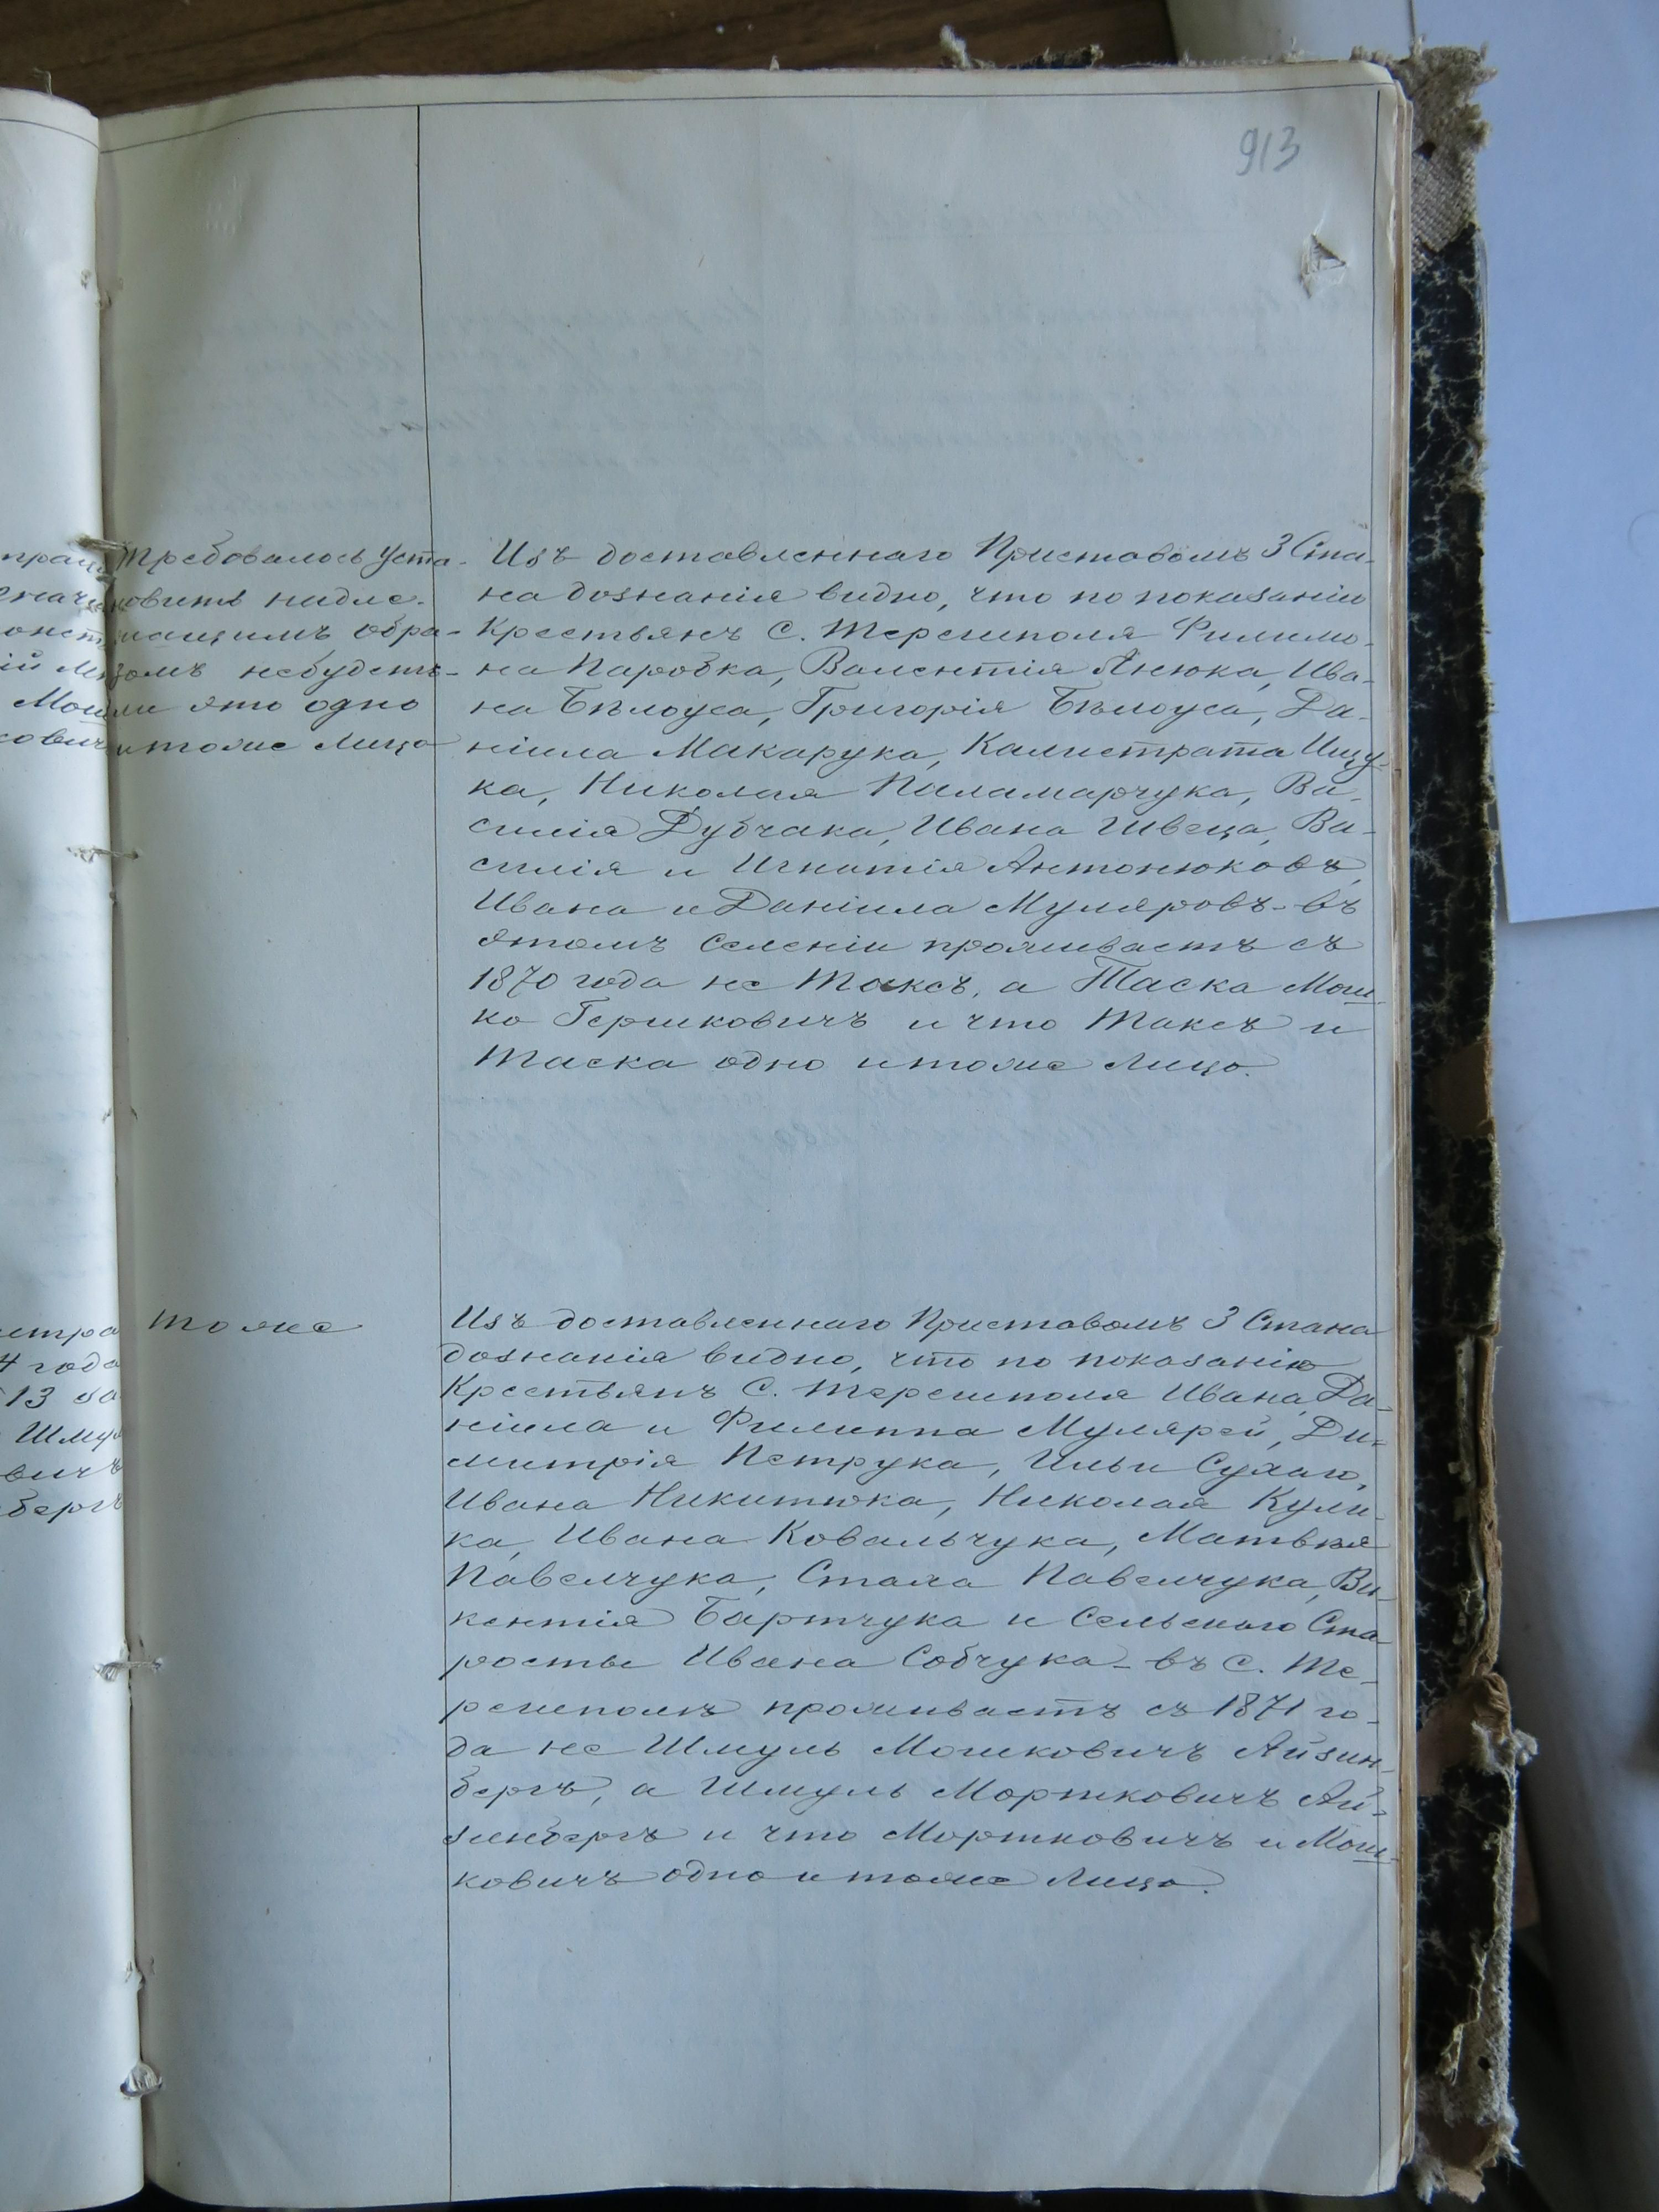 913
Требовалось уста-
новить надле-
жащимъ обра-
зомъ небудетъ-
ли это одно
итоже лицо
Изъ доставленнаго Приставомъ 3 Ста-
на дознанія видно, что по показанію
Крестьянъ С. Терешполя Филимо-
на Паробка, Валентія Янюка, Ива-
на Бѣлоуса, Григорія Бѣлоуса, Да-
ніила Макарука, Калистрата Ищу-
ка, Николая Паламарчука, Ва-
силія Дубчака, Ивана Швеца, Ва-
силія и Игнатія Антонюковъ,
Ивана и Даніила Муляровъ - въ
этомъ селеніи проживаетъ съ
1870 года не Таксъ, а Таска Мош-
ко Гершковичъ и что Таксъ и
Таска одно итоже лицо.
тоже
Изъ доставленнаго Приставомъ 3 Стана
дознанія видно, что по показанію
Крестьянъ С. Терешполя Ивана, Да-
ніила и Филиппа Мулярей, Ди-
митрія Петрука, Ильи Сухаго,
Ивана Никитюка, Николая Кули-
ка, Ивана Ковальчука, Матвѣя
Павелчука, Стаха Павелчука, Ви-
кентія Бартчука и Сельскаго Ста-
росты Ивана Собчука - въ с. Те-
решполѣ проживаетъ съ 1871 го-
да не Шмуль Мошковичъ Айзин-
бергъ, а Шмуль Мортковичъ Ай-
зенбергъ и что Мортковичъ и Мош-
ковичъ одно и тоже лицо.
4 года
13 за
Шму
вичъ
бергъ